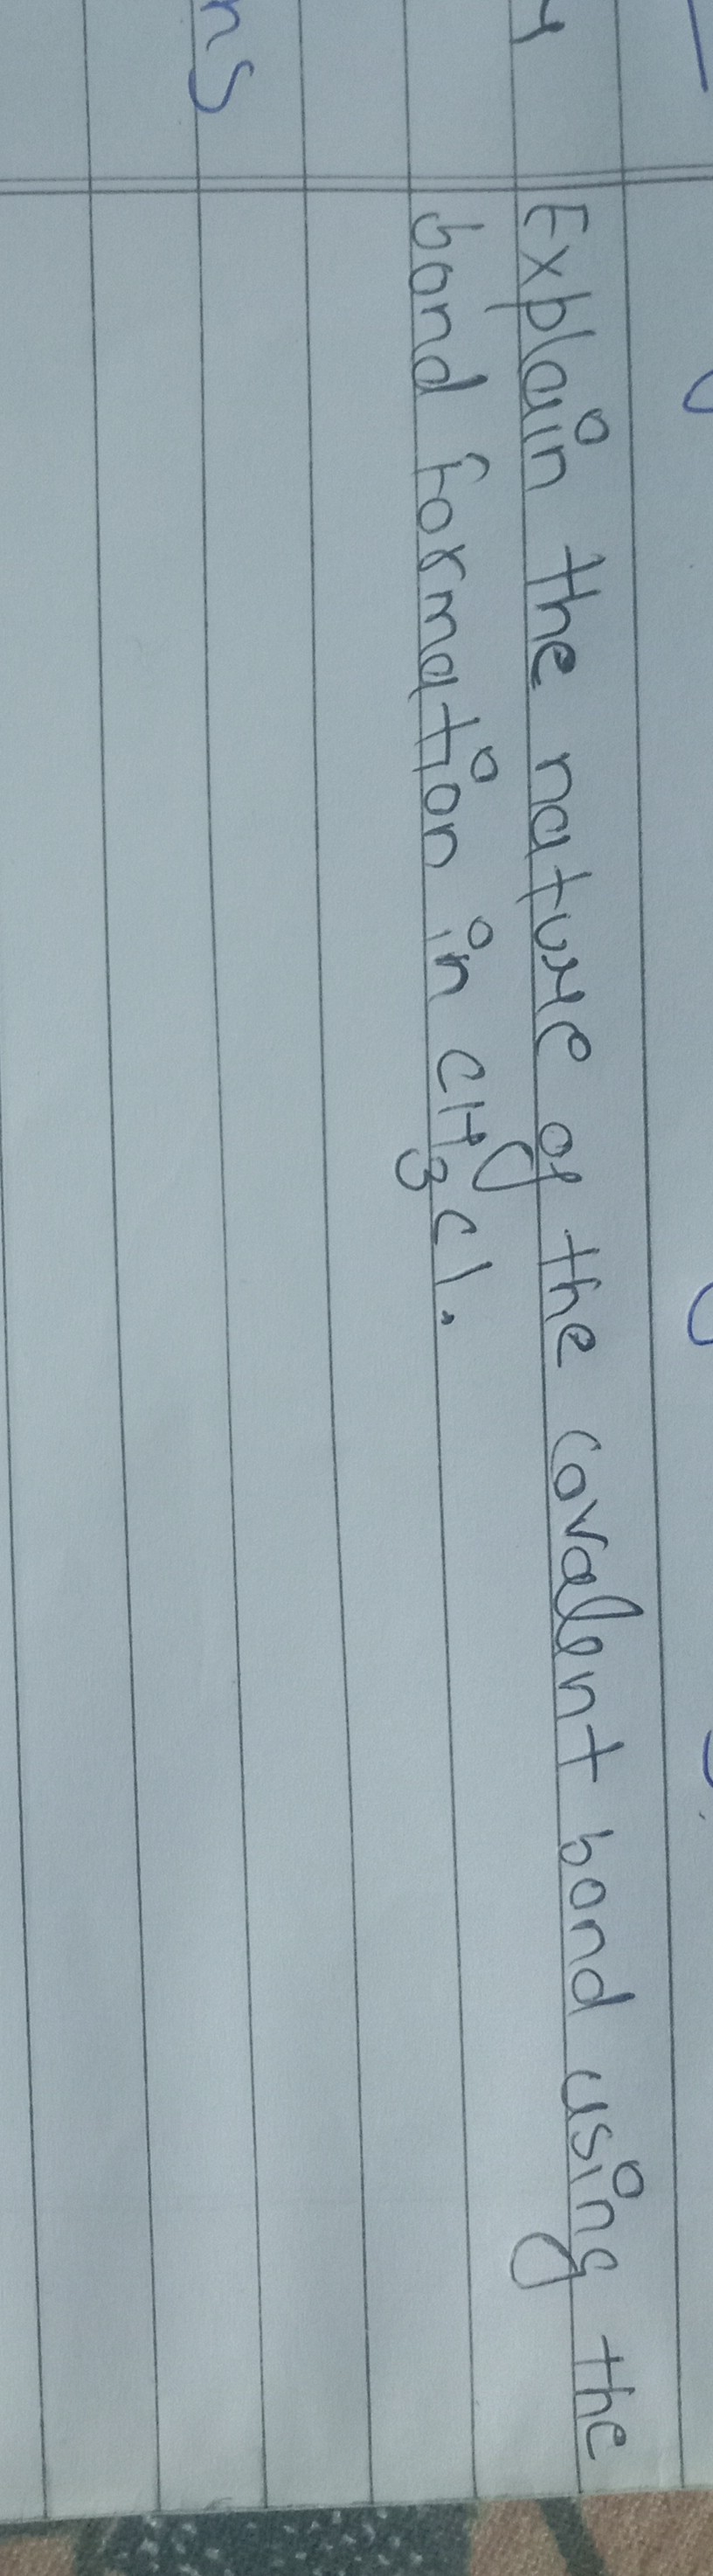 4 Explain the nature of the covalent bond using the
bond formation in CH3Cl.
ns